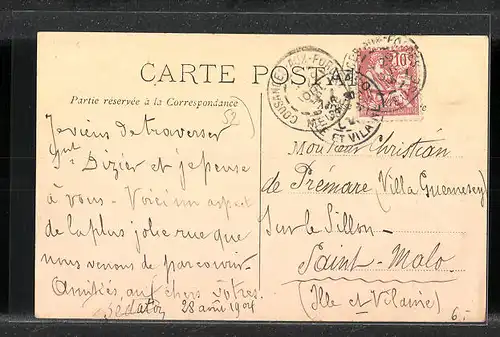 CARTE POSTALE
Partie réservée à la Correspondance
52
Je viens de traverser
St Dizier et je pense
à vous. Voici un aspect
de la plus jolie rue que
nous venons de parcourir.
Amitiés aux chers vôtres.
28 août 1904
COUSANCES-AUX-FORGES
MEUSE
10
ET VILAINE
Monsieur Christian
de Prémare (Villa Guernesey)
Sur le Sillon
Saint-Malo
(Ille et Vilaine)
6.-